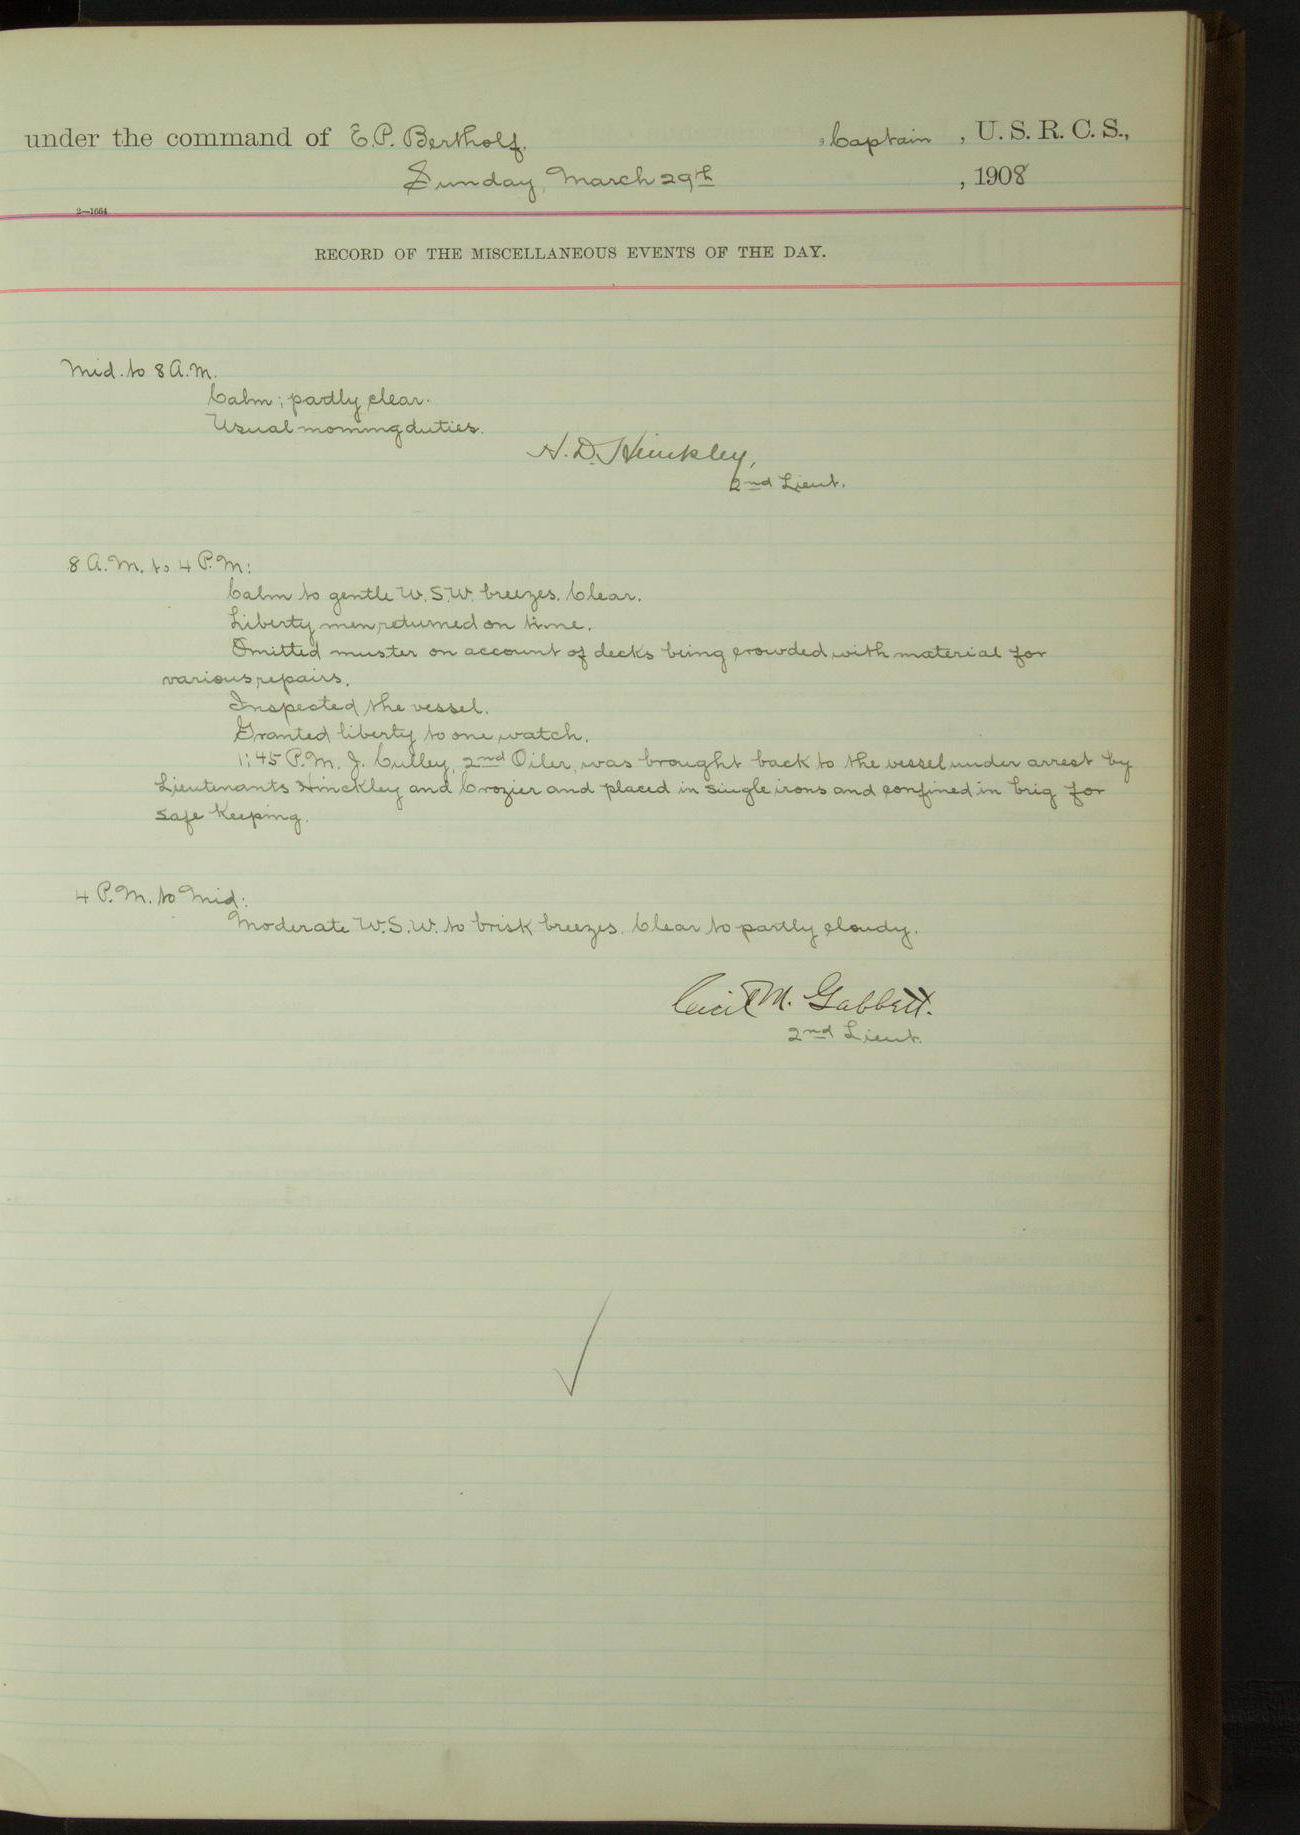 under the command of E.P. Bertholf. , Captain , U. S. R. C. S.,
Sunday, March 29th , 1908
2—1664
RECORD OF THE MISCELLANEOUS EVENTS OF THE DAY.
Mid. to 8 A.M.
Calm; partly clear.
Usual morning duties.
H. D. Hinckley,
2nd Lieut.
8 A.M. to 4 P.M:
Calm to gentle W.S.W. breezes. Clear.
Liberty men returned on time.
Omitted muster on account of decks being crowded with material for
various repairs.
Inspected the vessel.
Granted liberty to one watch.
1:45 P.M. J. Culley, 2nd Oiler, was brought back to the vessel under arrest by
Lieutenants Hinckley and Crozier and placed in single irons and confined in brig for
safe keeping.
4 P.M. to Mid:
Moderate W.S.W. to brisk breezes. Clear to partly cloudy.
Cecil M. Gabbett.
2nd Lieut.